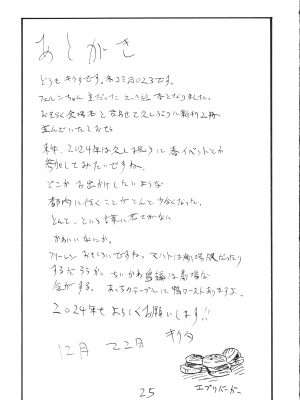 あとがき
どうも キクタです。冬コミ2023です。
フェルンちゃん 主だった えっち絵 本となりました。
おそらく会場本と合わせて久しぶりに新刊2冊
並んでいたとおもう
来年、2024年は久し振りに春イベントとか
参加してみたいですね。
どこかお出かけしたいような
都内に行くことがとんと少なかった。
とんと、という言葉に
かわいいなにか。
フリーレン おもしろいですねっ
するだろうか。ちいかわ島編は劇場な
気がする。あっちのテーブルに鴨ローストありますよ。
2024年も よろしくお願いします!!
キクタ
12月 22日
エブリバーガー
25